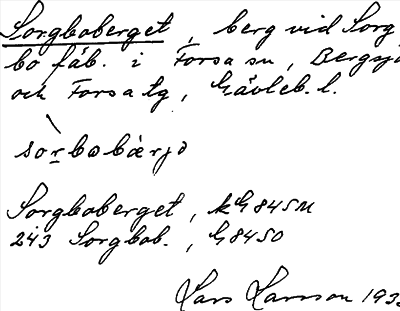 Sorgboberget, berg vid Sorg
bo fäb. i Forsa sn, Bergsjö
och Forsa tg, Gävleb. l.
sòrbobærjə
Sorgboberget, kG845M
243 Sorgbob., G8450
Lars Larsson 193